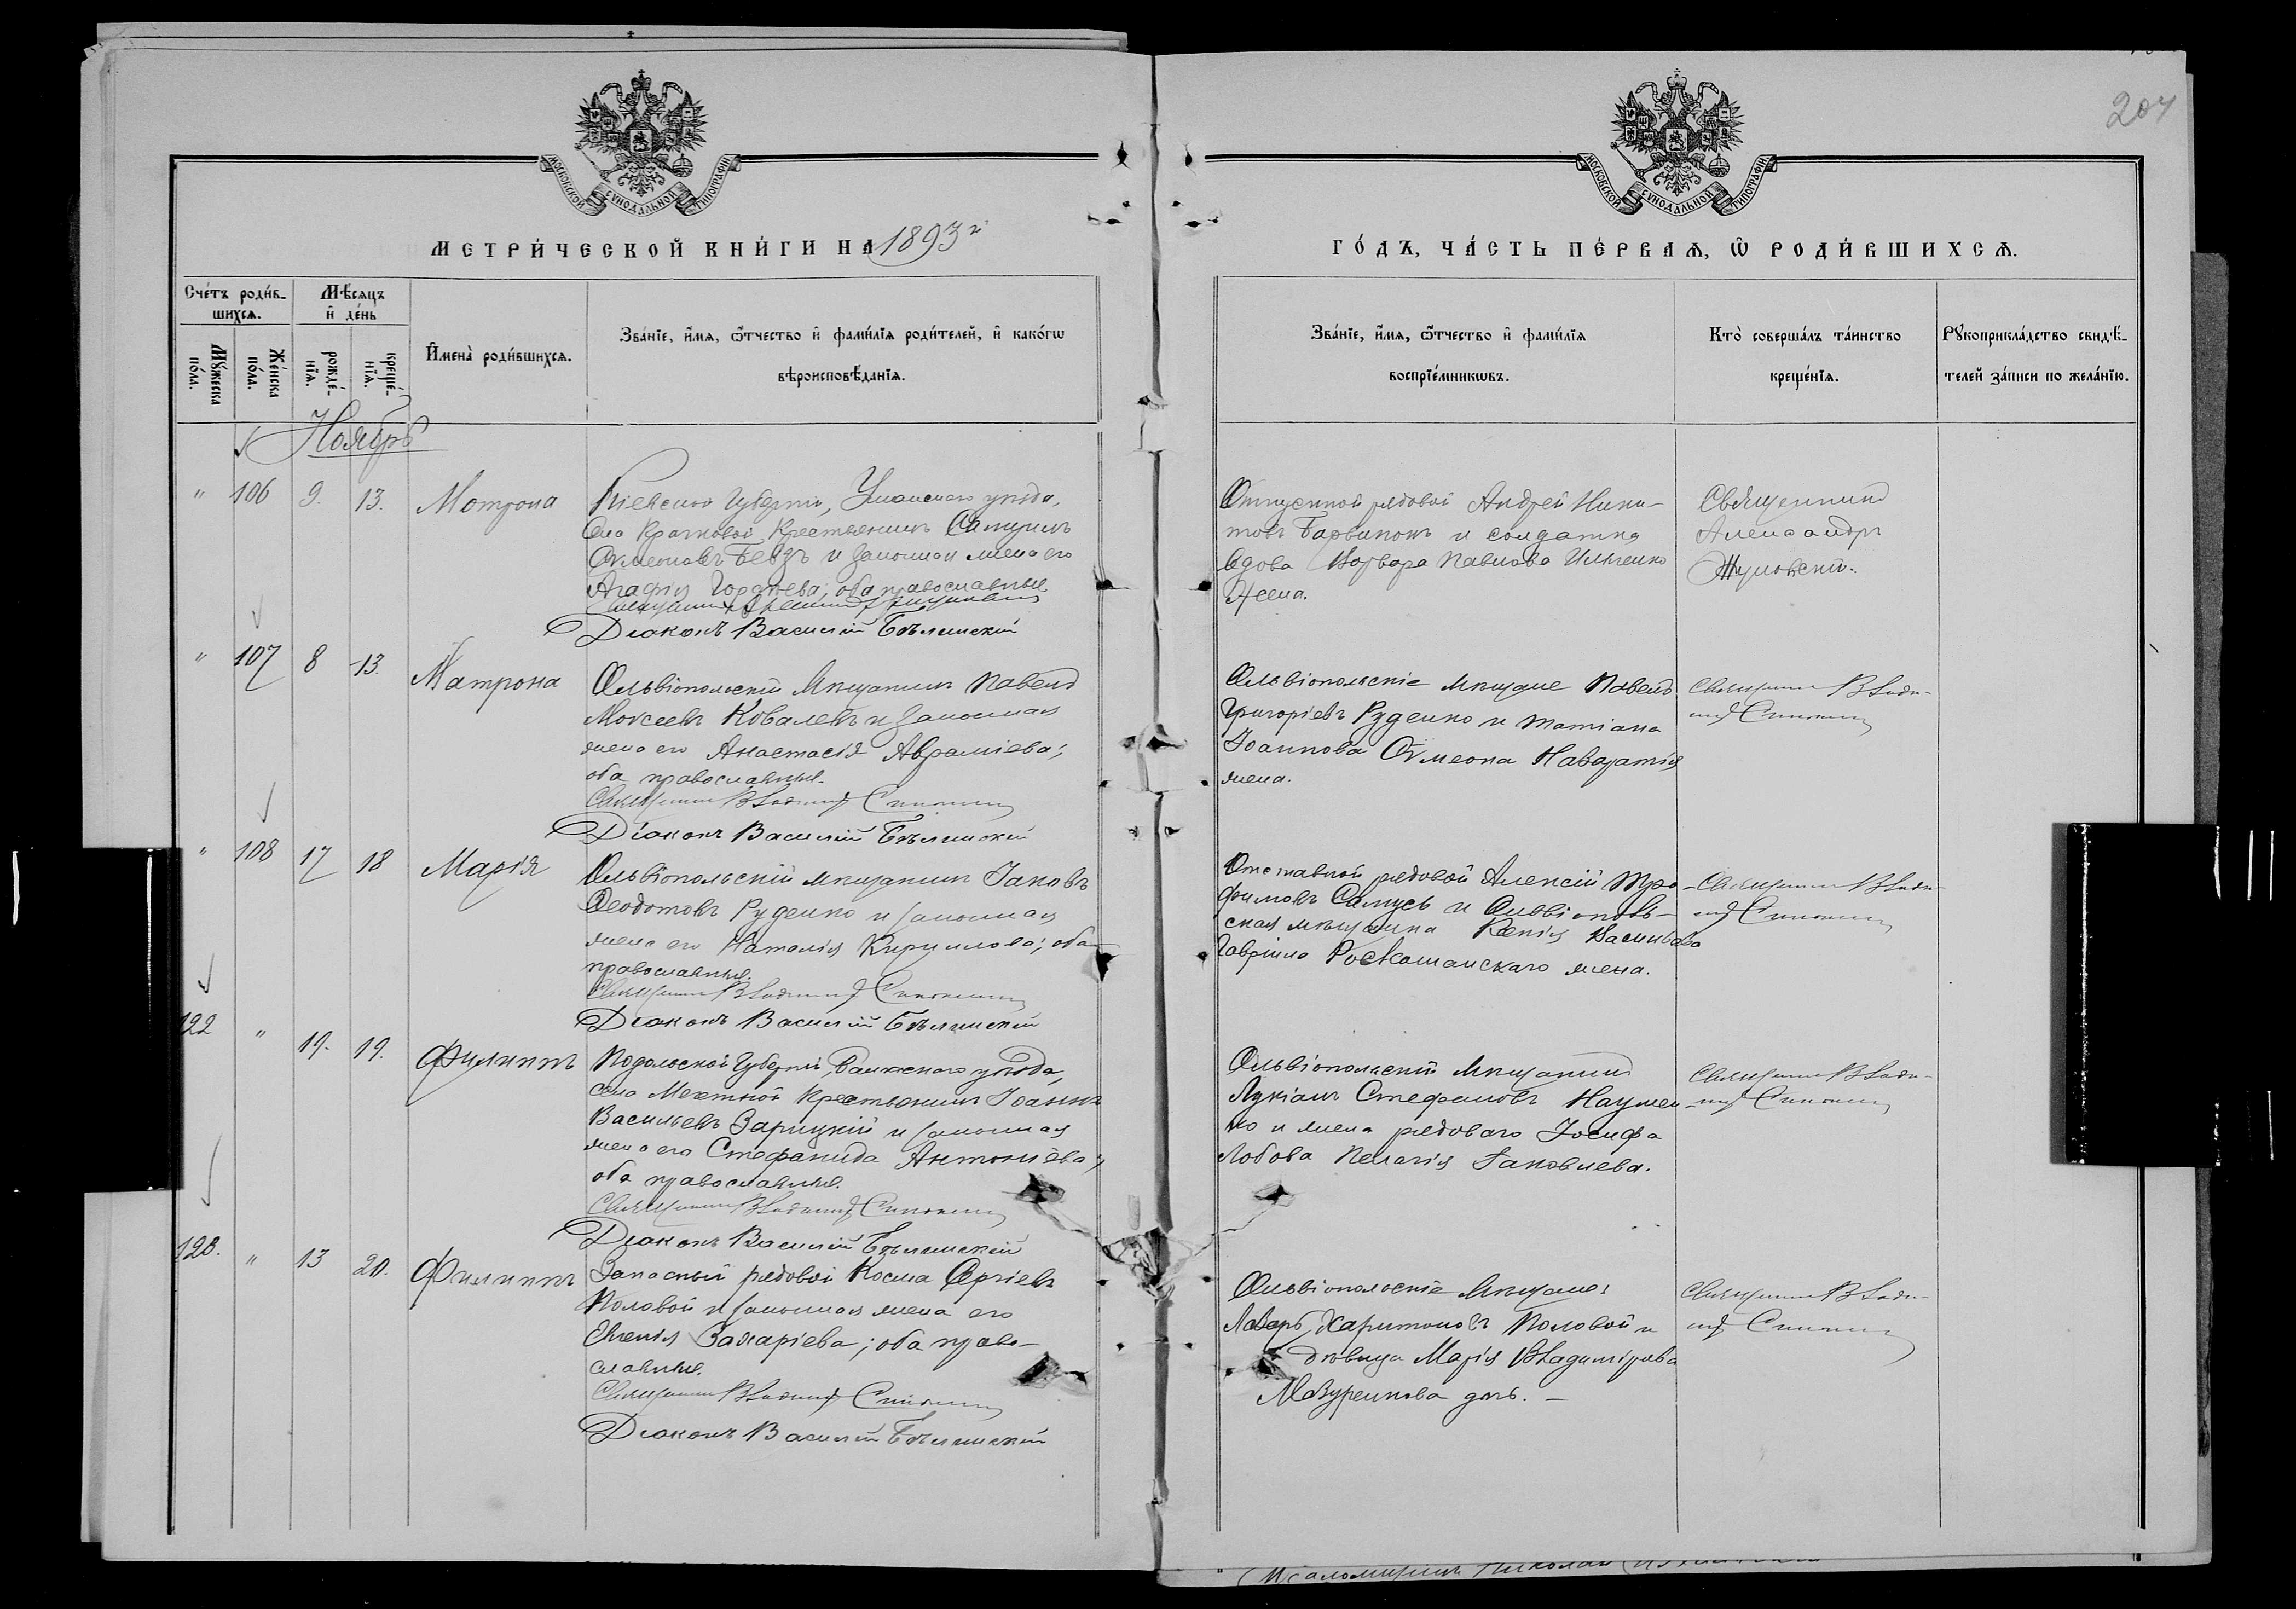 204
МОСКОВСКОЙ СѴНОДАЛЬНОЙ ТИПОГРАФІИ
МОСКОВСКОЙ СѴНОДАЛЬНОЙ ТИПОГРАФІИ
МЕТРИ́ЧЕСКОЙ КНИ́ГИ НА 1893 й
ГО́ДЪ, ЧА́СТЬ ПЕ́РВАѦ, Ѡ҆ РОДИ́ВШИХСѦ.
Сче́тъ роди́в-
шихсѧ.
Мꙋ́жеска по́ла.
Же́нска по́ла.
Мѣ́сѧцъ
и҆ де́нь
рожде́-
нїѧ.
креще́-
нїѧ.
И҆мена̀ роди́вшихсѧ.
Зва́нїе, и҆́мѧ, ѻ҆́тчество и҆ фами́лїѧ роди́телей, и҆ како́гѡ
вѣроисповѣ́данїѧ.
Зва́нїе, и҆́мѧ, ѻ҆́тчество и҆ фами́лїѧ
воспрїе́мникѡвъ.
Кто̀ соверша́лъ та́инство
креще́нїѧ.
Рꙋкоприкла́дство свидѣ́-
телей за́писи по жела́нїю.
Ноябрь
" 106 9. 13. Мотрона
Кіевской Губерніи, Уманскаго уѣзда,
села Крачковой крестьянинъ Самуилъ
Сѵмеоновъ Бевзъ и законная жена его
Агафія Гордѣева; оба православные
Діаконъ Василій Бѣлинскій
Отпускной рядовой Андрей Ники-
товъ Барвинокъ и солдатка
вдова Варвара Павлова Ильченко
Жена.
Священникъ
Александръ
" 107 8 13. Матрона
Ольвіопольскій мѣщанинъ Павелъ
Моисеевъ Ковалевъ и законная
жена его Анастасія Авраміева;
оба православные.
Священникъ Владимір
Діаконъ Василій Бѣлинскій
Ольвіопольскіе мѣщане Павелъ
Григоріевъ Руденко и Татіана
Іоаннова Сѵмеона
жена.
Священникъ Влади-
мір
" 108 17 18 Марія
Ольвіопольскій мѣщанинъ Іаковъ
Ѳеодотовъ Руденко и законная
жена его Наталія Кириллова; оба
православные.
Священникъ Владимір
Діаконъ Василій Бѣлинскій
Отставной рядовой Алексій Тро-
фимовъ Самусь и Ольвіополь-
ская мѣщанка Ксенія Васильева
Гавріила жена.
Священникъ Влади-
мір
122 " 19. 19. Филиппъ
Подольской Губерніи, Балтскаго уѣзда,
села крестьянинъ Іоаннъ
Васильевъ Зарицкій и законная
жена его Стефанида Антоніева;
оба православные.
Священникъ Владимір
Діаконъ Василій Бѣлинскій
Ольвіопольскій мѣщанинъ
Лукіанъ Стефановъ Наумен-
ко и жена рядоваго Іосифа
Лобова Пелагія Іаковлева.
Священникъ Влади-
мір
123. " 13 20. Филиппъ
Запасный рядовой Косма Сергіевъ
Половой и законная жена его
Евгенія Захаріева; оба право-
славные.
Священникъ Владимір
Діаконъ Василій Бѣлинскій
Ольвіопольскіе мѣщане:
Лазарь Харитоновъ Половой и
дѣвица Марія Владимірова
Мазуренкова дочь. –
Священникъ Влади-
мір